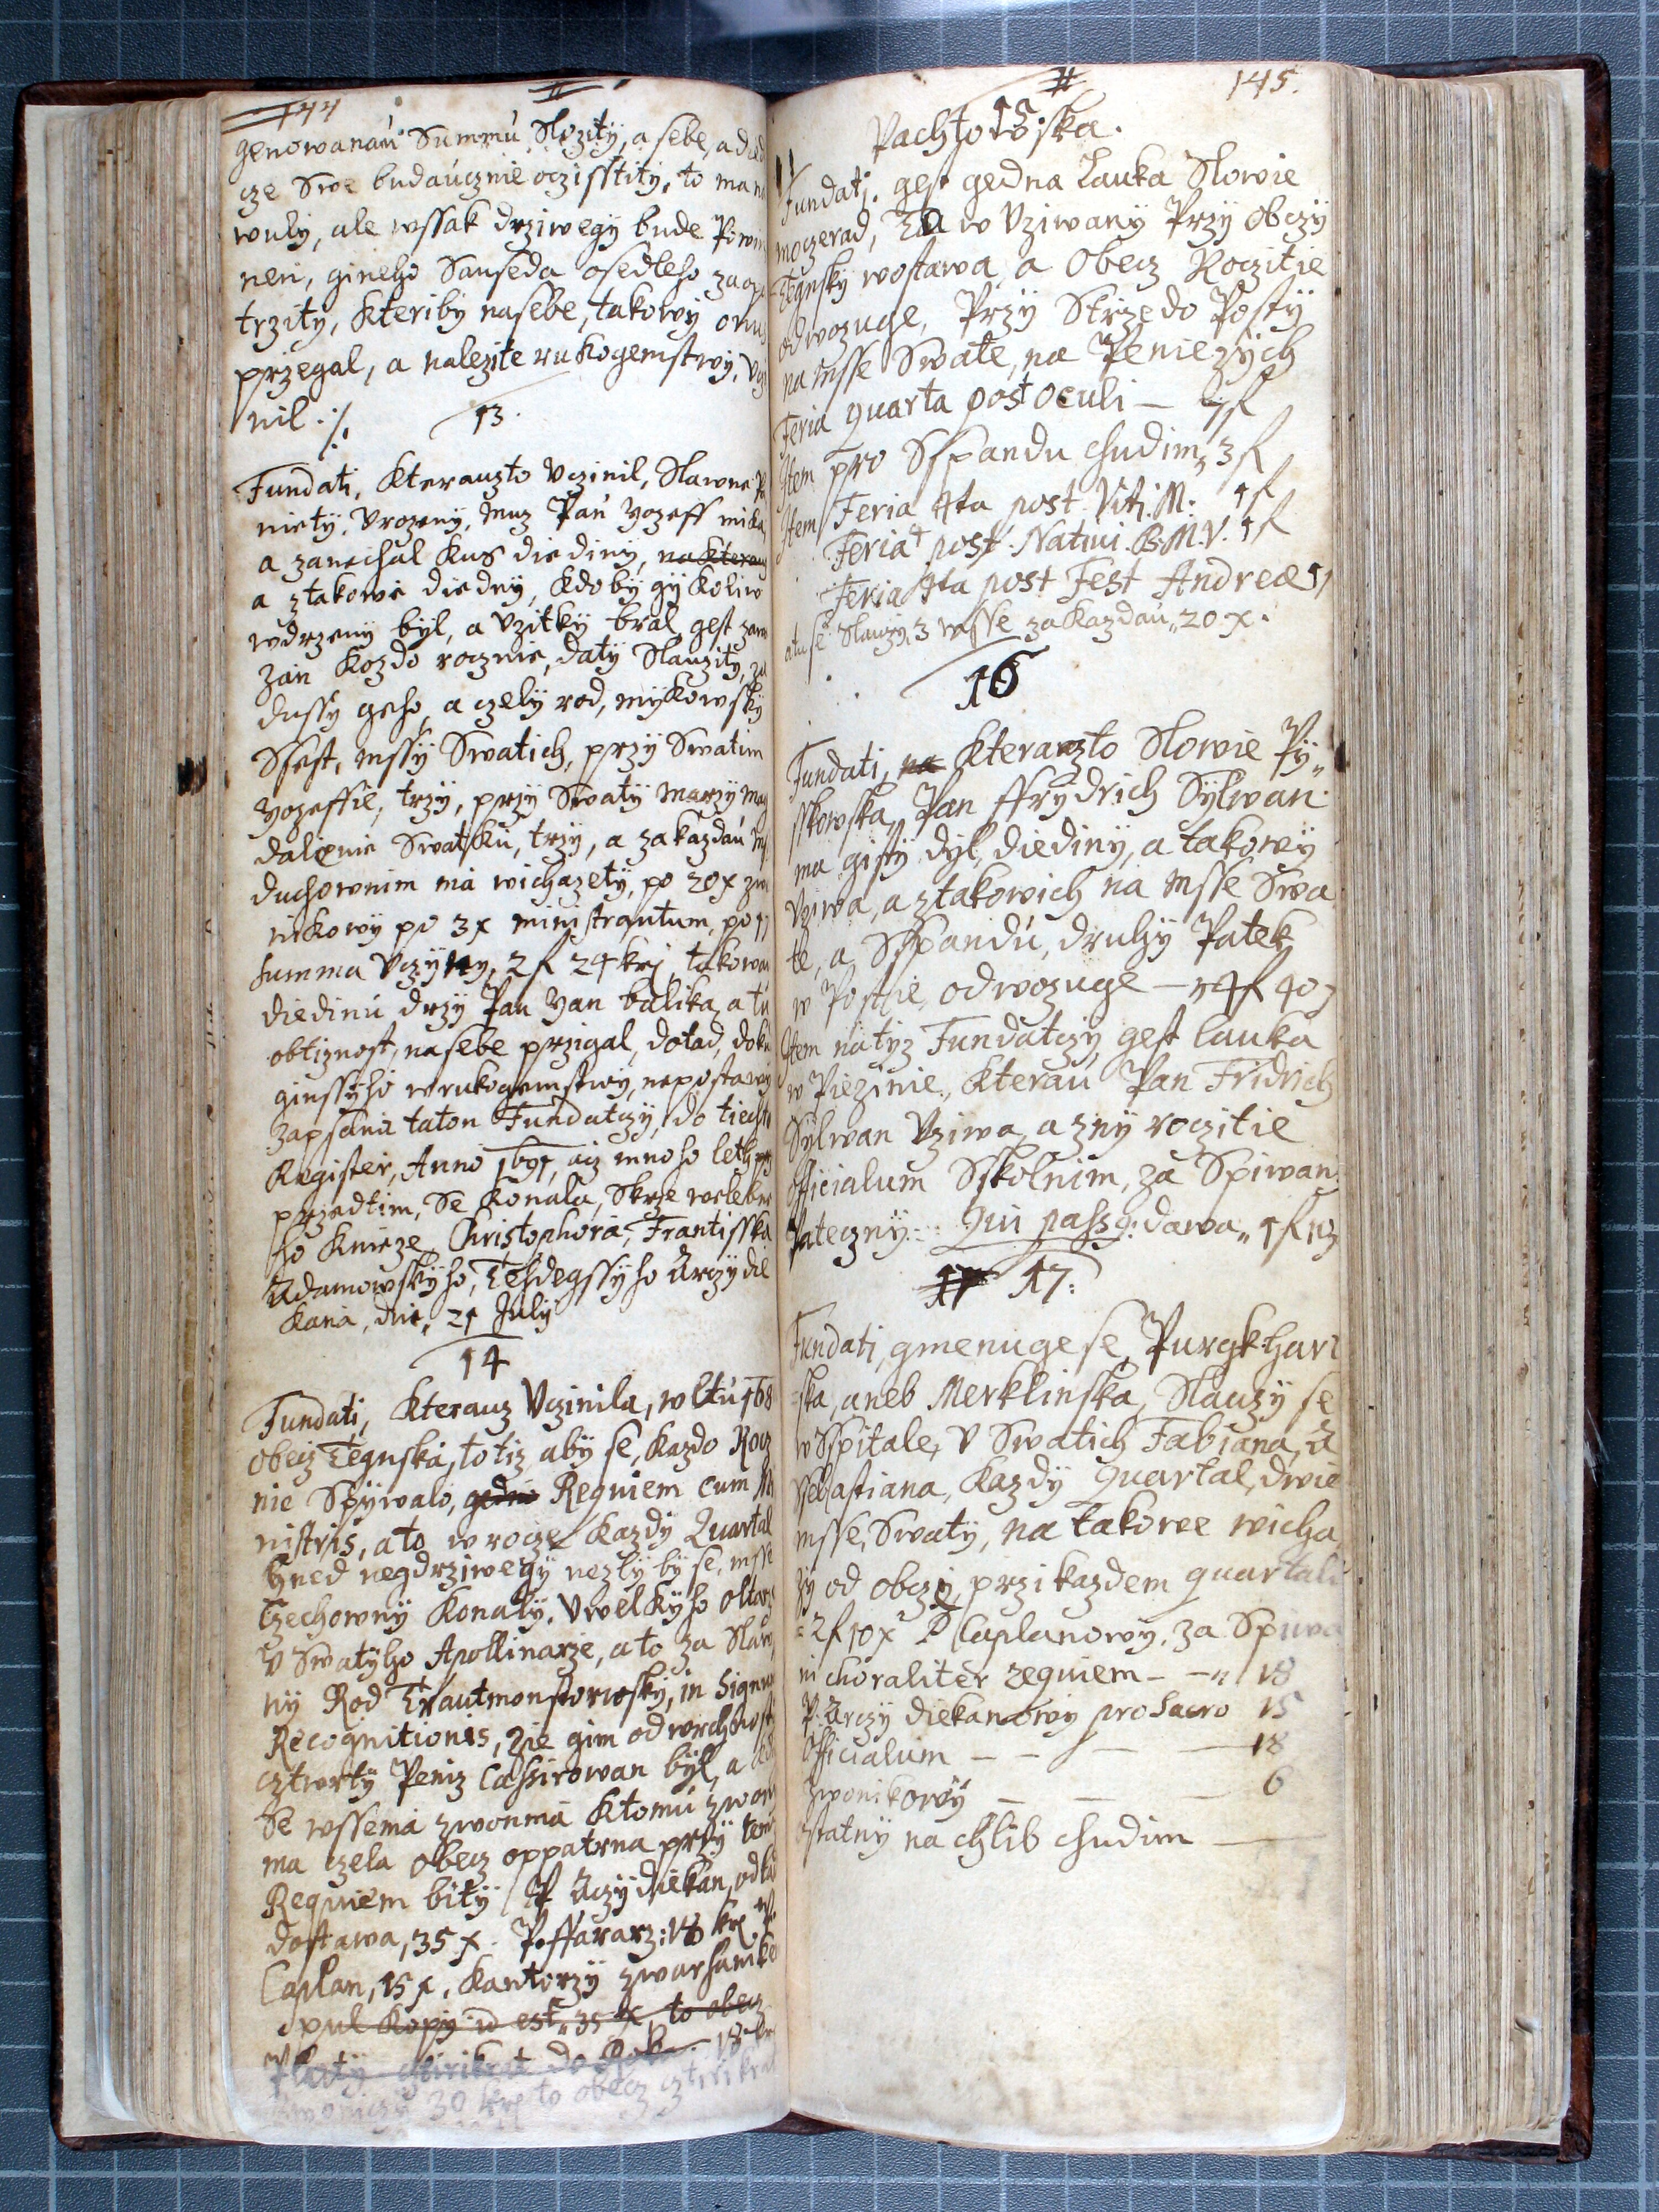 144
genowanau Summu Slozity, a sebe, a died
cze Swe budaucznie oczisstity, to ma na
wuly, ale wssak drziwegy bude Powin
nen, gineho Sauseda osedleho zaop
trzity, kteriby nasebe, takowy onus
przegal, a nalezite rukogemstwy, Vcz
nil ·/.
13.
Fundati, kterauzto Vczinil, Slawne P
niety, Vrozeny, muz Pan Yozeff mika
a zanechal kus diediny, na kterau
a ztakowe diedny, kdoby gy koliw
wdrzeny byl, a Vzitky bral gest zawa
zan kozdo rocznie, daty Slauzity, za
dussy geho, a czely rod, mykowsky
Ssest, mssy Swatich, przy Swatim
Yozeffie, trzy, przy Swaty Marzy Mag
dalienie Swatsku, trzy, a zakazdau Ms
duchownim ma wichazety, po 20 x zwo
nikowy po 3 x ministrantum, po 1
Summa Vczyny, 2 f 24 krj, takowau
diedinu drzy Pan Yan balika, a tu
obtiznost, nasebe przigal, dotad, doka
ginssyho wrukogemstwy, nepostawy
zapsana taton Fundatczy, do tiechto
Register, Anno 1691, acz mnoho leth
przedtim, Se konala, Skrze welebne
ho knieze Christophora, Frantisska
Adamowskyho, Tehdegssyho Arczydie
kana, die, 21 July
14
Fundati, kterauz Vczinila, wltu 168
obecz Tegnska, totiz aby se, kazdo Rocz
nie Spywalo, gedno Requiem cum Mi
nistris, a to w rocze kazdy Quartal
hned negdrziwegy nezlyby se, msse
Czechowny konaly, Vwelkyho oltarz
V Swatyho Apollinarze, ato za Slaw
ny Rod Trautmonstorwsky, in Signum
Recognitionis, zie gim odwrchnosti
cztwrty Peniz Cassirowan byl, a
Se wssema zwonma ktomu zwon
ma czela obecz oppatrna przy tom
Requiem bity P. Arczydiekan, odto
dostawa, 35 x. P. ffararz: 18 krj
Caplan, 15 x. kantorzy zwarhanike
pul kopy id est 35 x, to obecz
Platy cztirikrat do Roka. 18 kr
zwoniczy 30 krj to obecz cztirikrat
145.
15
Pachtowska.
Fundati. gest gedna Lauka Slowie
moczerad, Ta w Vziwany Przy obczy
Tegnsky wostawa, a Obecz Roczitie
odwozuge, Przy Strzedo Posty
na msse Swate, na Peniezych
Feria quarta post oculi — 7 f
Item pro Sspandu chudim, 3 f
Item Feria 4ta post Viti. M: 1 f
Feria 4 post. Natiui. B. M. V. 1 f
Feria 4ta post Fest Andreæ 1
atu se Slauzy 3 msse za kazdau, 20 x.
16
Fundati, na kterauzto Slowie Py„
sskowska, Pan ffrydrich Sylwan
ma gisty dyl, diediny, a takowy
Vziwa, a ztakowich na Msse Swa
te, a Sspandu, druhy Patek
w Postie, odwozuge — 14 f 40
Item natyz Fundatczy gest lauka
w Piezinie, kterau Pan Fridrich
Sylwan Vziwa, a zny roczitie
Officialum Sskolnim, za Spiwani
Pateczny: Qui passq: dawa„ 1 f 10
17 17:
Fundati, gmenuge se, Purgkhart
ska, aneb Merklinska, Slauzy se
w Spitale, V Swatich Fabiana, a
Ssebastiana, kazdy Quartal, dwie
msse, Swaty, na takowe wicha
zy od obczy przikazdem quartali
2 f 10 x P. Caplanowy. za Spiwa
ni choraliter requiem — — 18
P. Arczy diekanowy pro Sacro 15
Officialum — — — 18
Zwonikowy — — — 6
ostatny na chlib chudim —